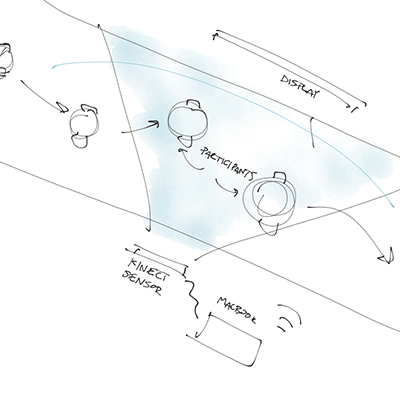 DISPLAY
PARTICIPANTS
KINECT
SENSOR
MACBOOK